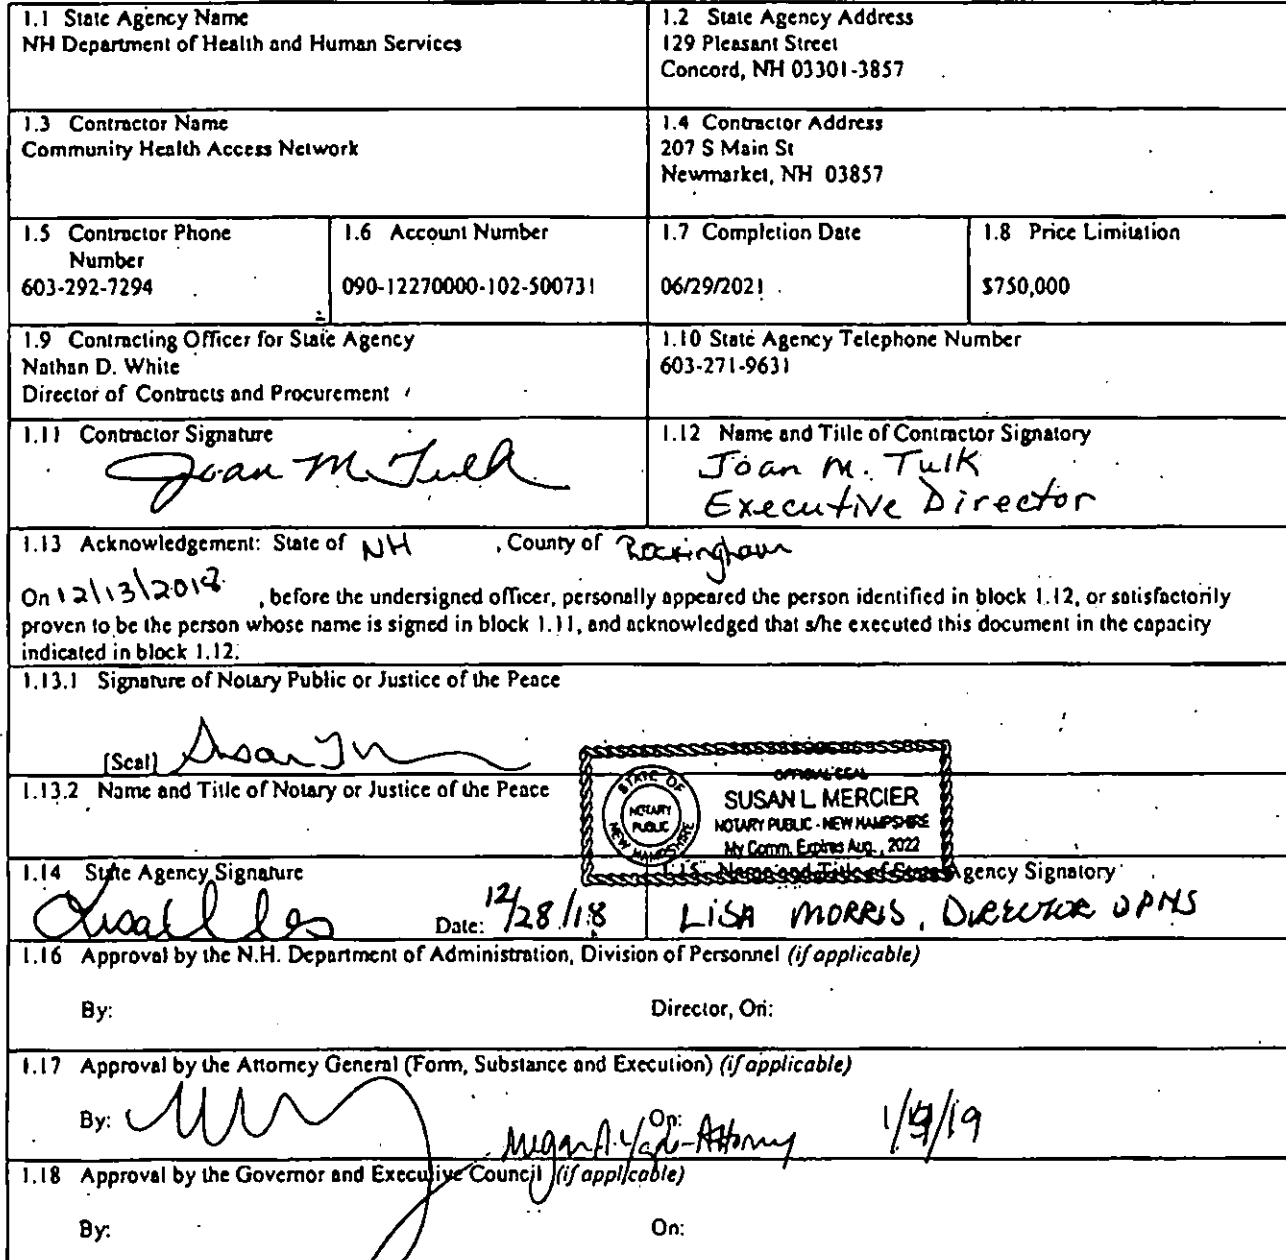 1.1 State Agency Name
NH Department of Health and Human Services
1.2 State Agency Address
129 Pleasant Street
Concord, NH 03301-3857
1.3 Contractor Name
Community Health Access Network
1.4 Contractor Address
207 S Main St
Newmarket, NH 03857
1.5 Contractor Phone
Number
603-292-7294
1.6 Account Number
090-12270000-102-500731
1.7 Completion Date
06/29/2021
1.8 Price Limitation
$750,000
1.9 Contracting Officer for State Agency
Nathan D. White
Director of Contracts and Procurement
1.10 State Agency Telephone Number
603-271-9631
1.11 Contractor Signature
Joan M Tulk
1.12 Name and Title of Contractor Signatory
Joan M. Tulk
Executive Director
1.13 Acknowledgement: State of NH , County of Rockingham
On 12/13/2018 , before the undersigned officer, personally appeared the person identified in block 1.12, or satisfactorily
proven to be the person whose name is signed in block 1.11, and acknowledged that s/he executed this document in the capacity
indicated in block 1.12.
1.13.1 Signature of Notary Public or Justice of the Peace
[Seal] Susan
1.13.2 Name and Title of Notary or Justice of the Peace
STATE OF
NOTARY
PUBLIC
NEW HAMPSHIRE
OFFICIAL SEAL
SUSAN L. MERCIER
NOTARY PUBLIC - NEW HAMPSHIRE
My Comm. Expires Aug. , 2022
1.14 State Agency Signature
Date: 12/28/18
1.15 Name and Title of State Agency Signatory
LISA MORRIS, DIRECTOR DPHS
1.16 Approval by the N.H. Department of Administration, Division of Personnel (if applicable)
By:
Director, On:
1.17 Approval by the Attorney General (Form, Substance and Execution) (if applicable)
By:
On:
Megan A. - Attorney
1.18 Approval by the Governor and Executive Council (if applicable)
By:
On: